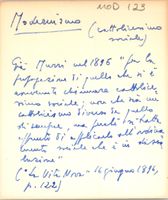 MOD 123
Modernismo
(cattolicesimo
sociale)
Già Murri nel 1896 "per la
propagazione di quello che si è
convenuto chiamare cattolice-
simo sociale; non che sia un
cattolicesimo diverso da quello
di sempre, ma perché si tratta
appunto di applicarlo all'ordina-
mento sociale che è in disso-
luzione"
("La Vita Nova", 16 giugno 1896,
p. 122)